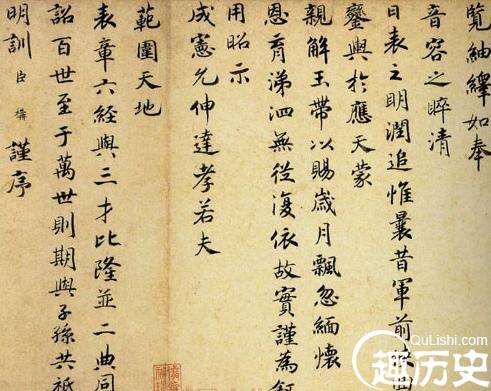 覽紬繹如奉
音容之睟清
日表之明潤追惟曩昔軍前
鑾輿於應天蒙
親解玉帶以賜歲月飄忽緬懷
恩育涕泗無從復依故實謹為
用昭示
成憲允伸達孝若夫
範圍天地
表章六經與三才比隆並二典同
詔百世至于萬世則期與子孫共祗
明訓臣構謹序
QuLishi.com
趣历史